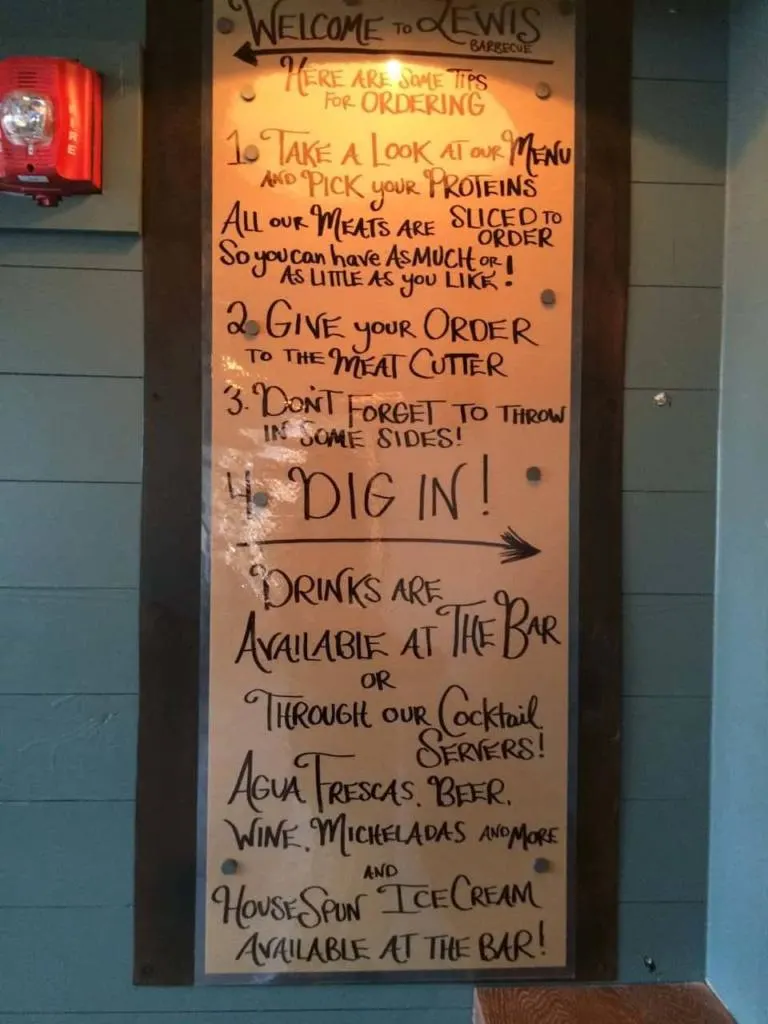 WELCOME TO LEWIS
BARBECUE
HERE ARE SOME TIPS
FOR ORDERING
1. TAKE A LOOK AT OUR MENU
AND PICK your PROTEINS
ALL OUR MEATS ARE SLICED TO
ORDER
So you can have AS MUCH OR
AS LITTLE AS you LIKE!
2. GIVE your ORDER
TO THE MEAT CUTTER
3. DON'T FORGET TO THROW
IN SOME SIDES!
4. DIG IN!
DRINKS ARE
AVAILABLE AT THE BAR
OR
THROUGH OUR Cocktail
SERVERS!
AGUA FRESCAS, BEER,
WINE, MICHELADAS AND MORE
AND
HOUSE SPUN ICE CREAM
AVAILABLE AT THE BAR!
FIRE